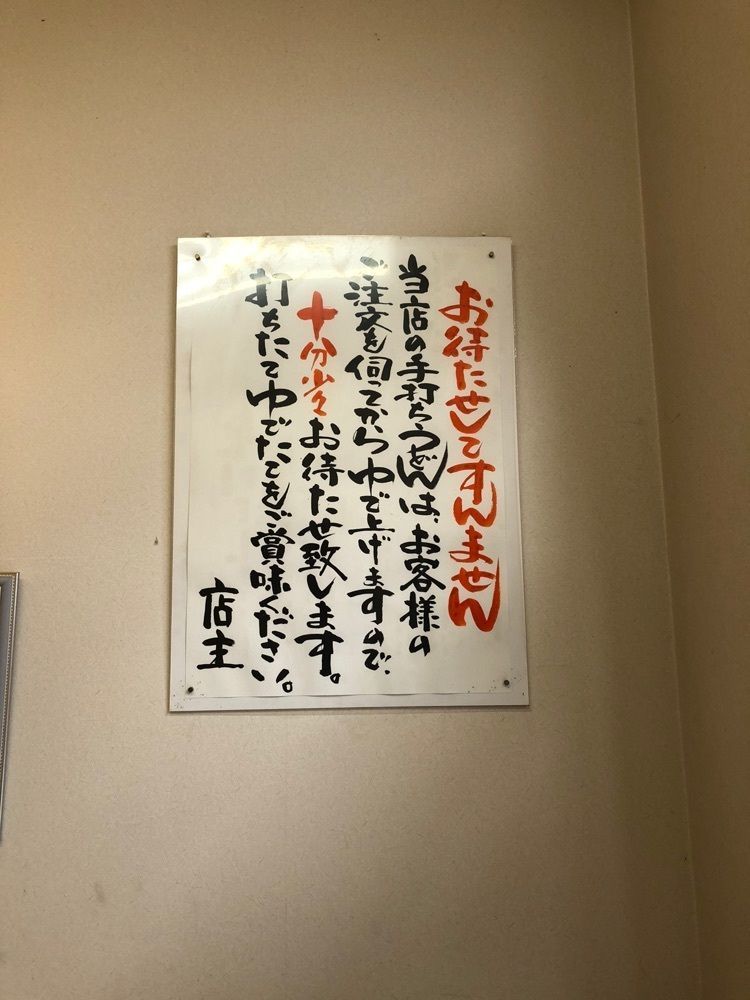 お待たせしてすんません
当店の手打ちうどんは、お客様の
ご注文を伺ってからゆで上げますので、
十分少々お待たせ致します。
打ちたてゆでたてをご賞味ください。
店主